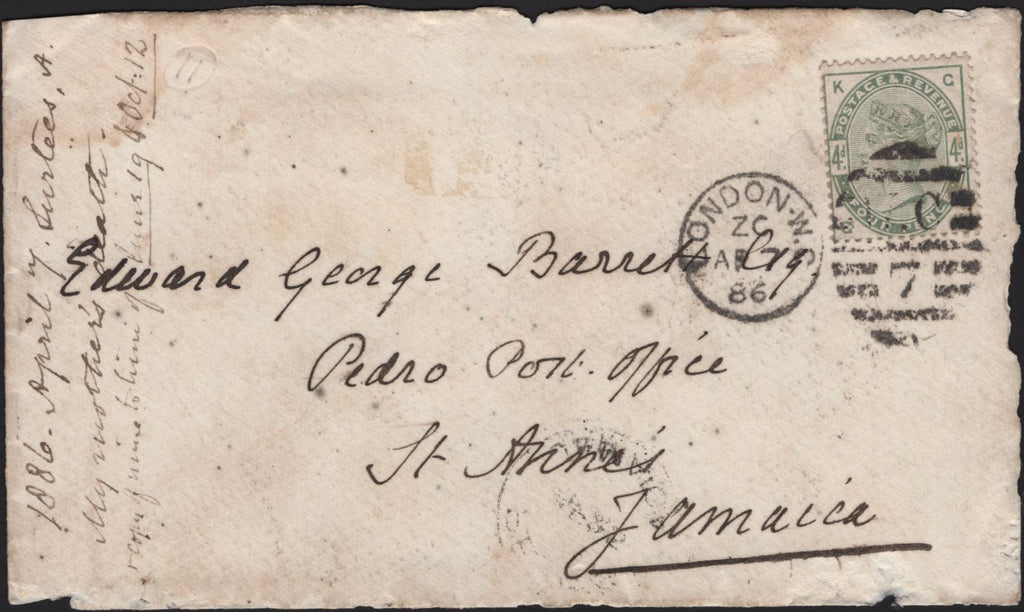 1886. April 
My mother's death.
copy of mine to him of June 19 & Oct: 12
11
K G
POSTAGE & REVENUE
4d. 4d.
LONDON·W.
ZC
AP
86
C
7
Edward George Barrett Esq.
Pedro Post. Office
St Anne's
Jamaica